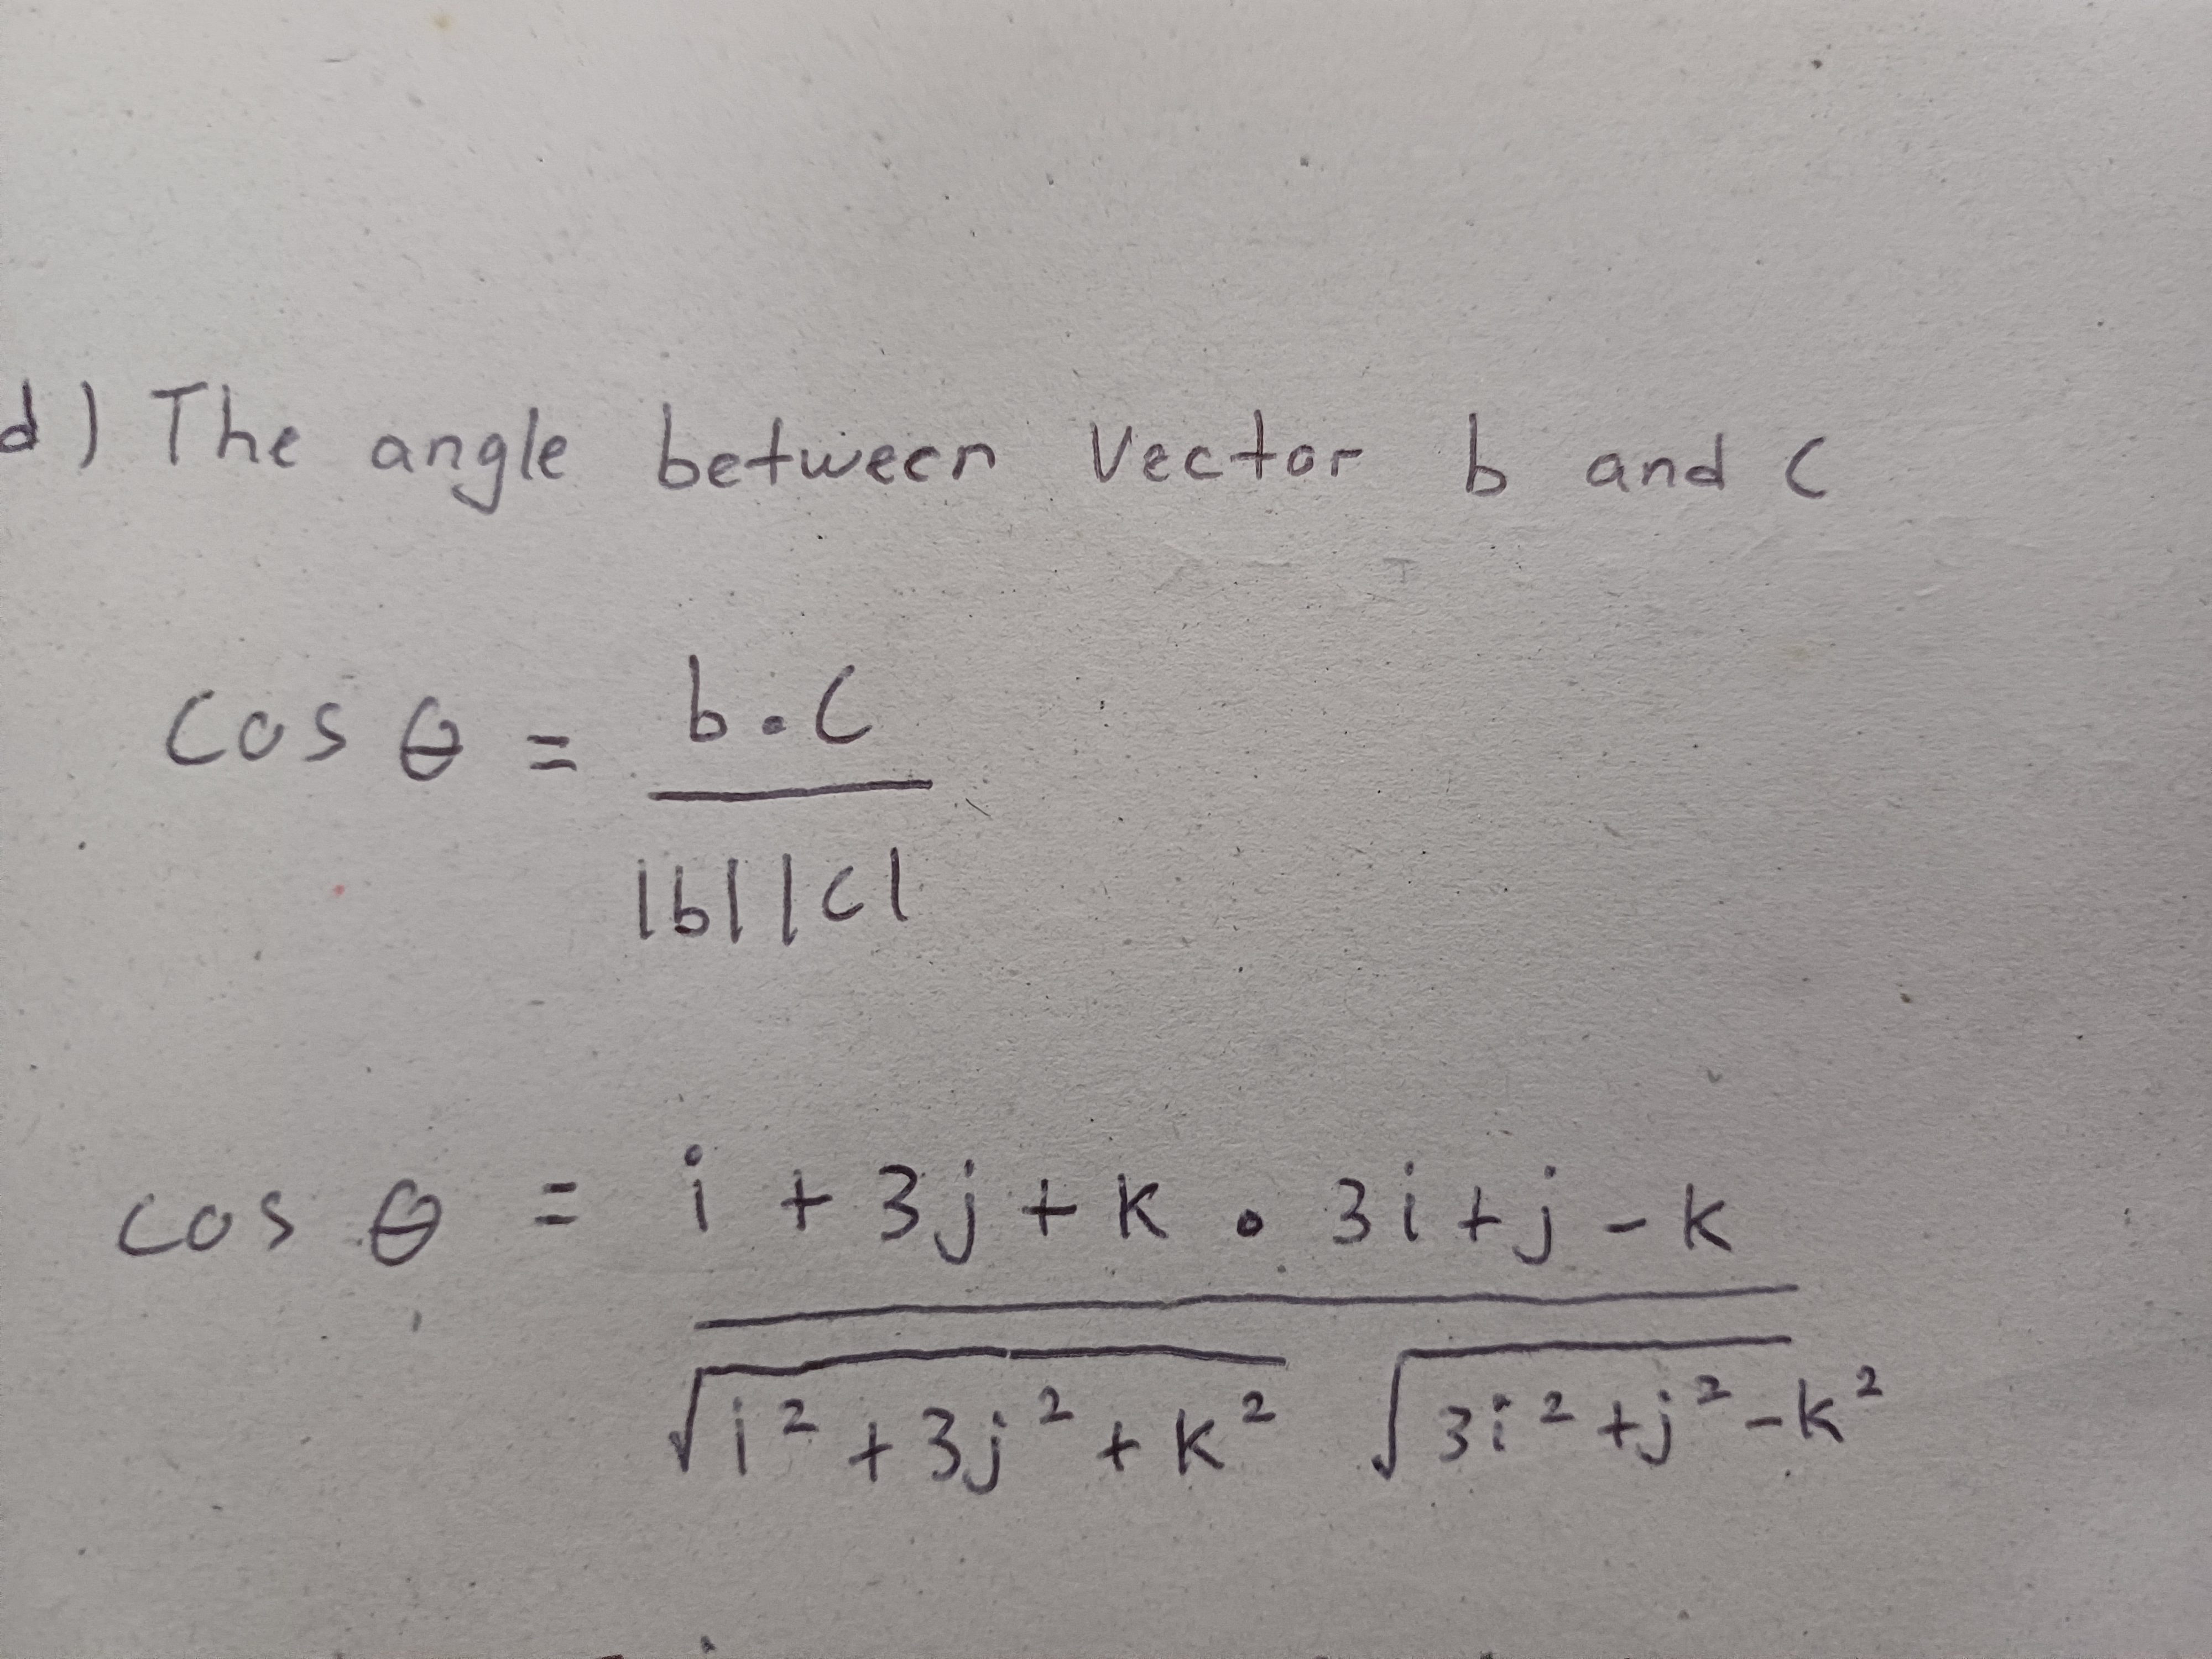 d) The angle between Vector b and C
Cos θ = b.C
|b||c|
Cos θ = i + 3j + k . 3i + j - k
√i² + 3j² + k² √3i² + j² - k²